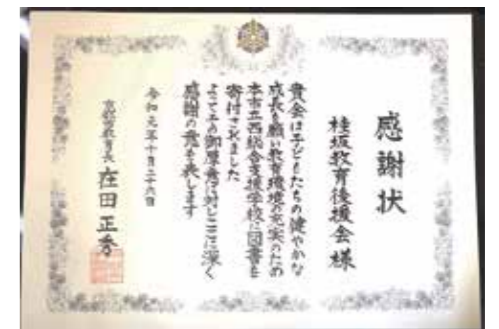 感謝状
桂坂教育後援会様
貴会は子どもたちの健やかな
成長を願い教育環境の充実のため
本市立西総合支援学校に図書を
寄付されました
よってその御厚意に対しここに深く
感謝の意を表します
令和元年十月二十六日
京都市教育長 在田正秀